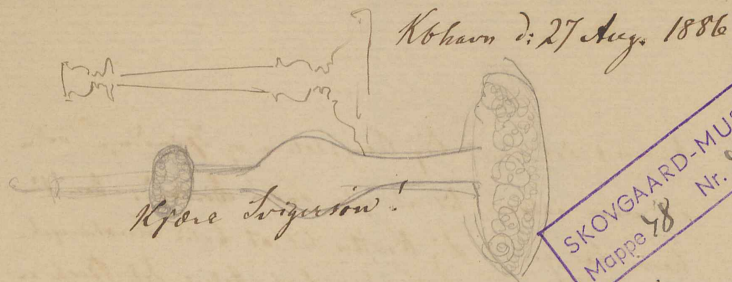 Kbhavn d: 27 Aug. 1886
Kjære Svigersøn!
SKOVGAARD-MUS
Mappe 48 Nr.